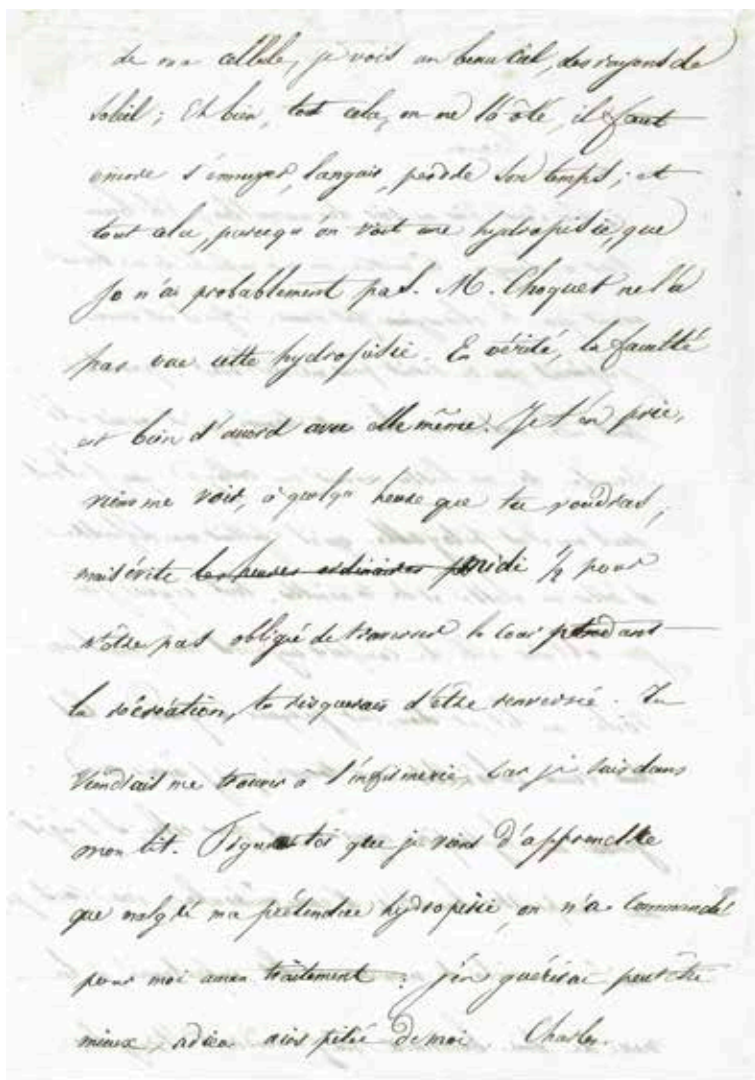 de ma cellule, je vois un beau ciel, des rayons de
soleil ; Eh bien, tout cela, on me l'a ôté, il faut
encore s'ennuyer, languir, perdre son temps ; et
tout cela, parcequ'on voit une hydropisie, que
Je n'ai probablement pas. M. Choquet ne l'a
pas vue cette hydropisie. En vérité, la faculté
est bien d'accord avec elle même. Je t'en prie,
viens me voir, à quelqu' heure que tu voudras,
mais évite les heures ordinaires midi ½ pour
n'être pas obligé de traverser la cour pendant
la récréation, tu risquerais d'être renversé. Tu
viendrais me trouver à l'infirmerie, car je suis dans
mon lit. Figure toi que je viens d'apprendre
que malgré ma prétendue hydropisie, on n'a commandé
pour moi aucun traitement : j'en guérirai peut être
mieux, adieu aies pitié de moi Charles.